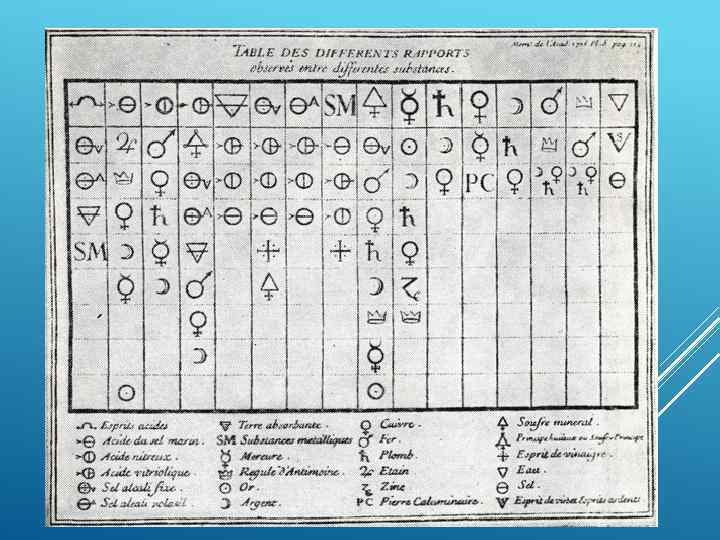 TABLE DES DIFFERENTS RAPPORTS
observés entre differentes substances.
SM
PC
SM
Esprits acides
Acide du sel marin.
Acide nitreux.
Acide vitriolique.
Sel alcali fixe.
Sel alcali volatil.
Terre absorbante.
SM Substances metalliques
Mercure.
Regule d'Antimoine.
Or.
Argent.
Cuivre.
Fer.
Plomb.
Etain
Zinc
PC Pierre Calaminaire.
Soufre mineral.
Principe huileux ou Soufre Principe
Esprit de vinaigre.
Eau.
Sel.
Esprit de vin et Esprits ardents